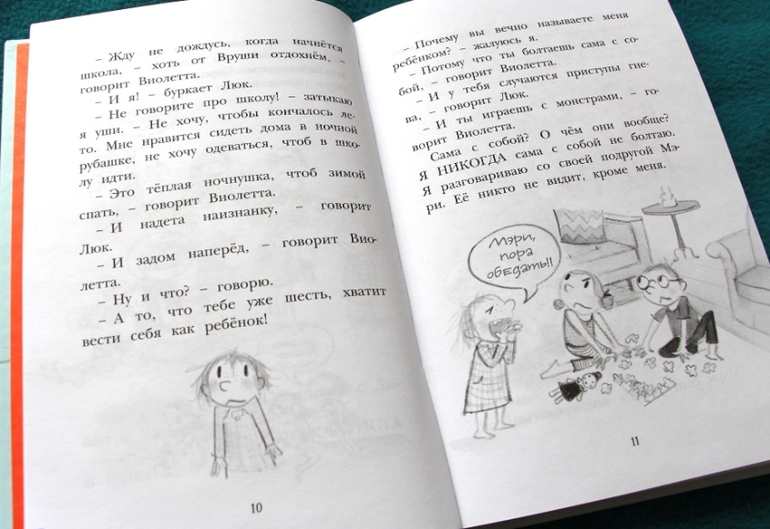 – Жду не дождусь, когда начнётся
школа, – хоть от Вруши отдохнём, –
говорит Виолетта.
– И я! – буркает Люк.
– Не говорите про школу! – затыкаю
я уши. – Не хочу, чтобы кончалось ле-
то. Мне нравится сидеть дома в ночной
рубашке, не хочу одеваться, чтоб в шко-
лу идти.
– Это тёплая ночнушка, чтоб зимой
спать, – говорит Виолетта.
– И надета наизнанку, – говорит
Люк.
– И задом наперёд, – говорит Вио-
летта.
– Ну и что? – говорю.
– А то, что тебе уже шесть, хватит
вести себя как ребёнок!
10
– Почему вы вечно называете меня
ребёнком? – жалуюсь я.
– Потому что ты болтаешь сама с со-
бой, – говорит Виолетта.
– И у тебя случаются приступы гне-
ва, – говорит Люк.
– И ты играешь с монстрами, – го-
ворит Виолетта.
Сама с собой? О чём они вообще?
Я НИКОГДА сама с собой не болтаю.
Я разговариваю со своей подругой Мэ-
ри. Её никто не видит, кроме меня.
Мэри,
пора
обедать!!
11